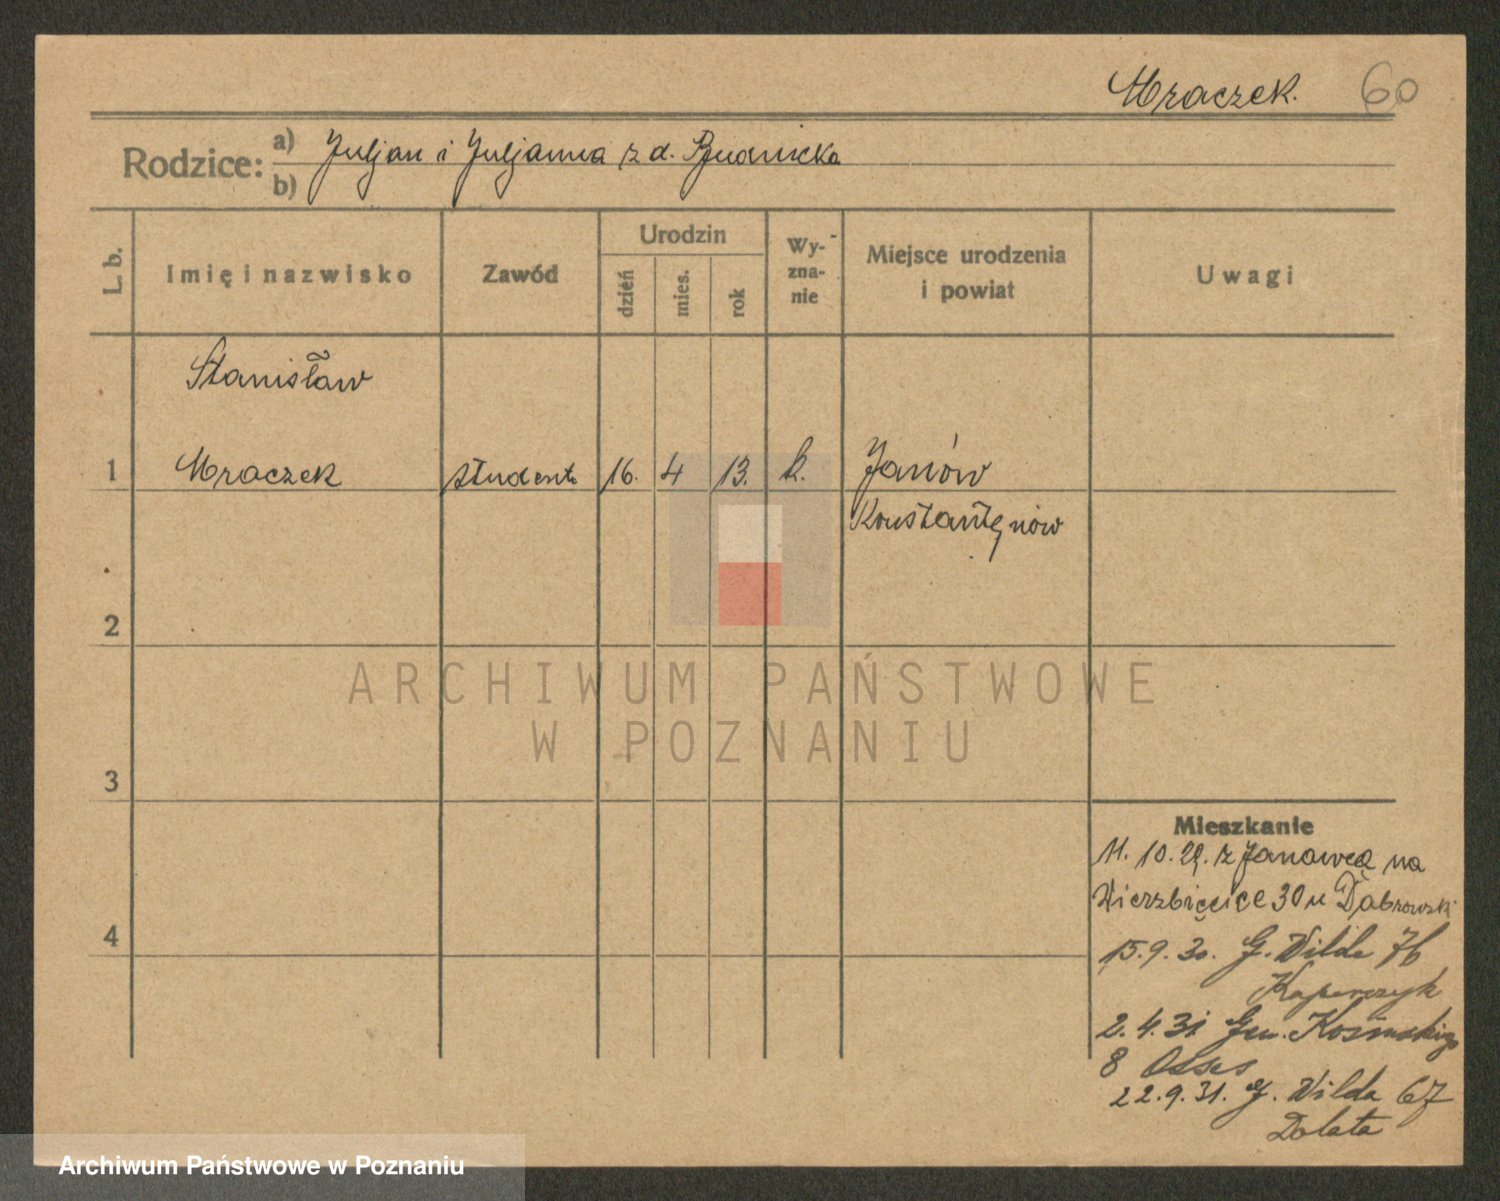 Mraczek. 60
Rodzice: a) Juljan i Juljanna z d. Rudnicka
b)
L. b. Imię i nazwisko Zawód Urodzin Wy-zna-nie Miejsce urodzenia i powiat Uwagi
dzień mies. rok
Stanisław
1 Mraczek student 16. 4 13. k. Janów
Konstantynów
2
ARCHIWUM PAŃSTWOWE
W POZNANIU
3
Mieszkanie
11. 10. 29. z Janowca na
Wierzbięcice 30 u Dąbrowski
4
15. 9. 30. G. Wilda 76
Kaperczyk
2. 4. 31 Gen. Kosińskiego
8
22. 9. 31. G. Wilda 67
Dolata
Archiwum Państwowe w Poznaniu